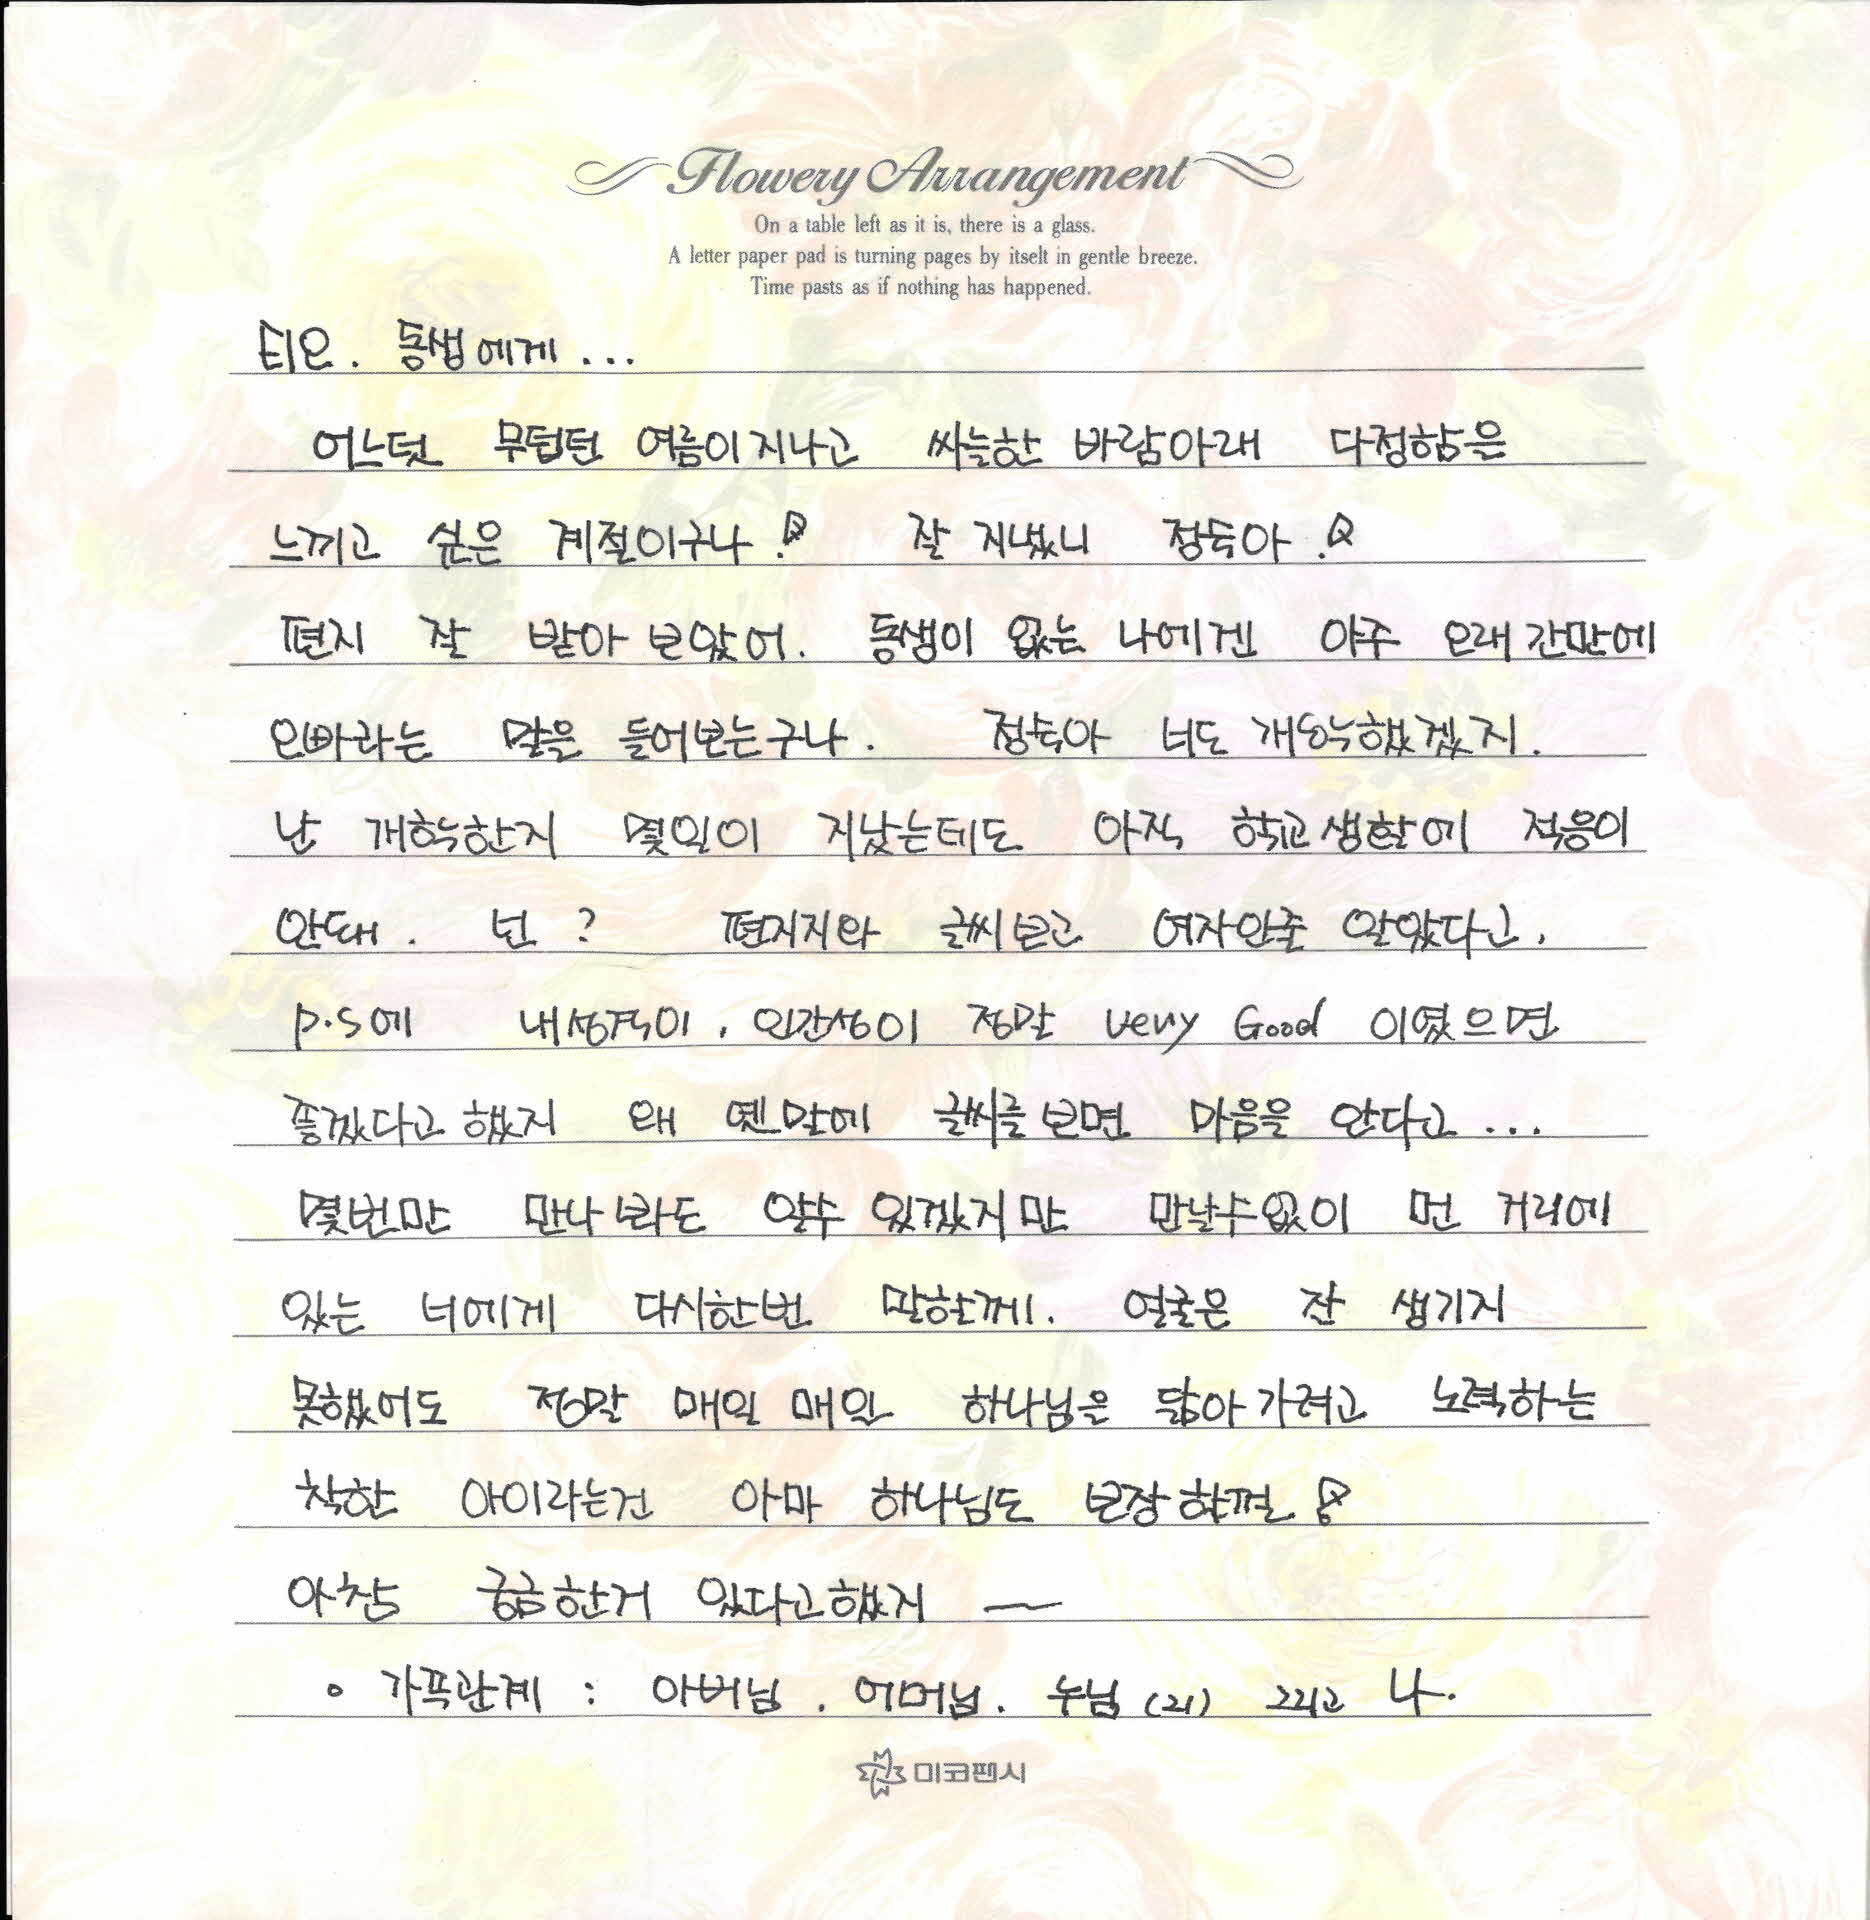 Flowery Arrangement
On a table left as it is, there is a glass.
A letter paper pad is turning pages by itselt in gentle breeze.
Time pasts as if nothing has happened.
티요. 동생에게...
어느덧 무덥던 여름이 지나고 싸늘한 바람아래 다정함은
느끼고 싶은 계절이구나! 잘 지냈니 정숙아!
편지 잘 받아 보았어. 동생이 없는 나에겐 아주 오래간만에
오빠라는 말을 들어보는구나. 정숙아 너도 개학했겠지.
난 개학한지 몇일이 지났는데도 아직 학교생활에 적응이
안돼. 넌? 편지지와 글씨보고 여자인줄 알았다고.
p.s에 내성격이, 인간성이 정말 very Good 이였으면
좋겠다고 했지 왜 옛말에 글씨를 보면 마음을 안다고...
몇번만 만나봐도 알수 있겠지만 만날수없이 먼 거리에
있는 너에게 다시한번 말할께. 얼굴은 잘 생기지
못했어도 정말 매일 매일 하나님을 닮아가려고 노력하는
착한 아이라는건 아마 하나님도 보장할껄!
아참 궁금한거 있다고했지 —
• 가족관계 : 아버님. 어머님. 누님 (21) 그리고 나.
미코팬시